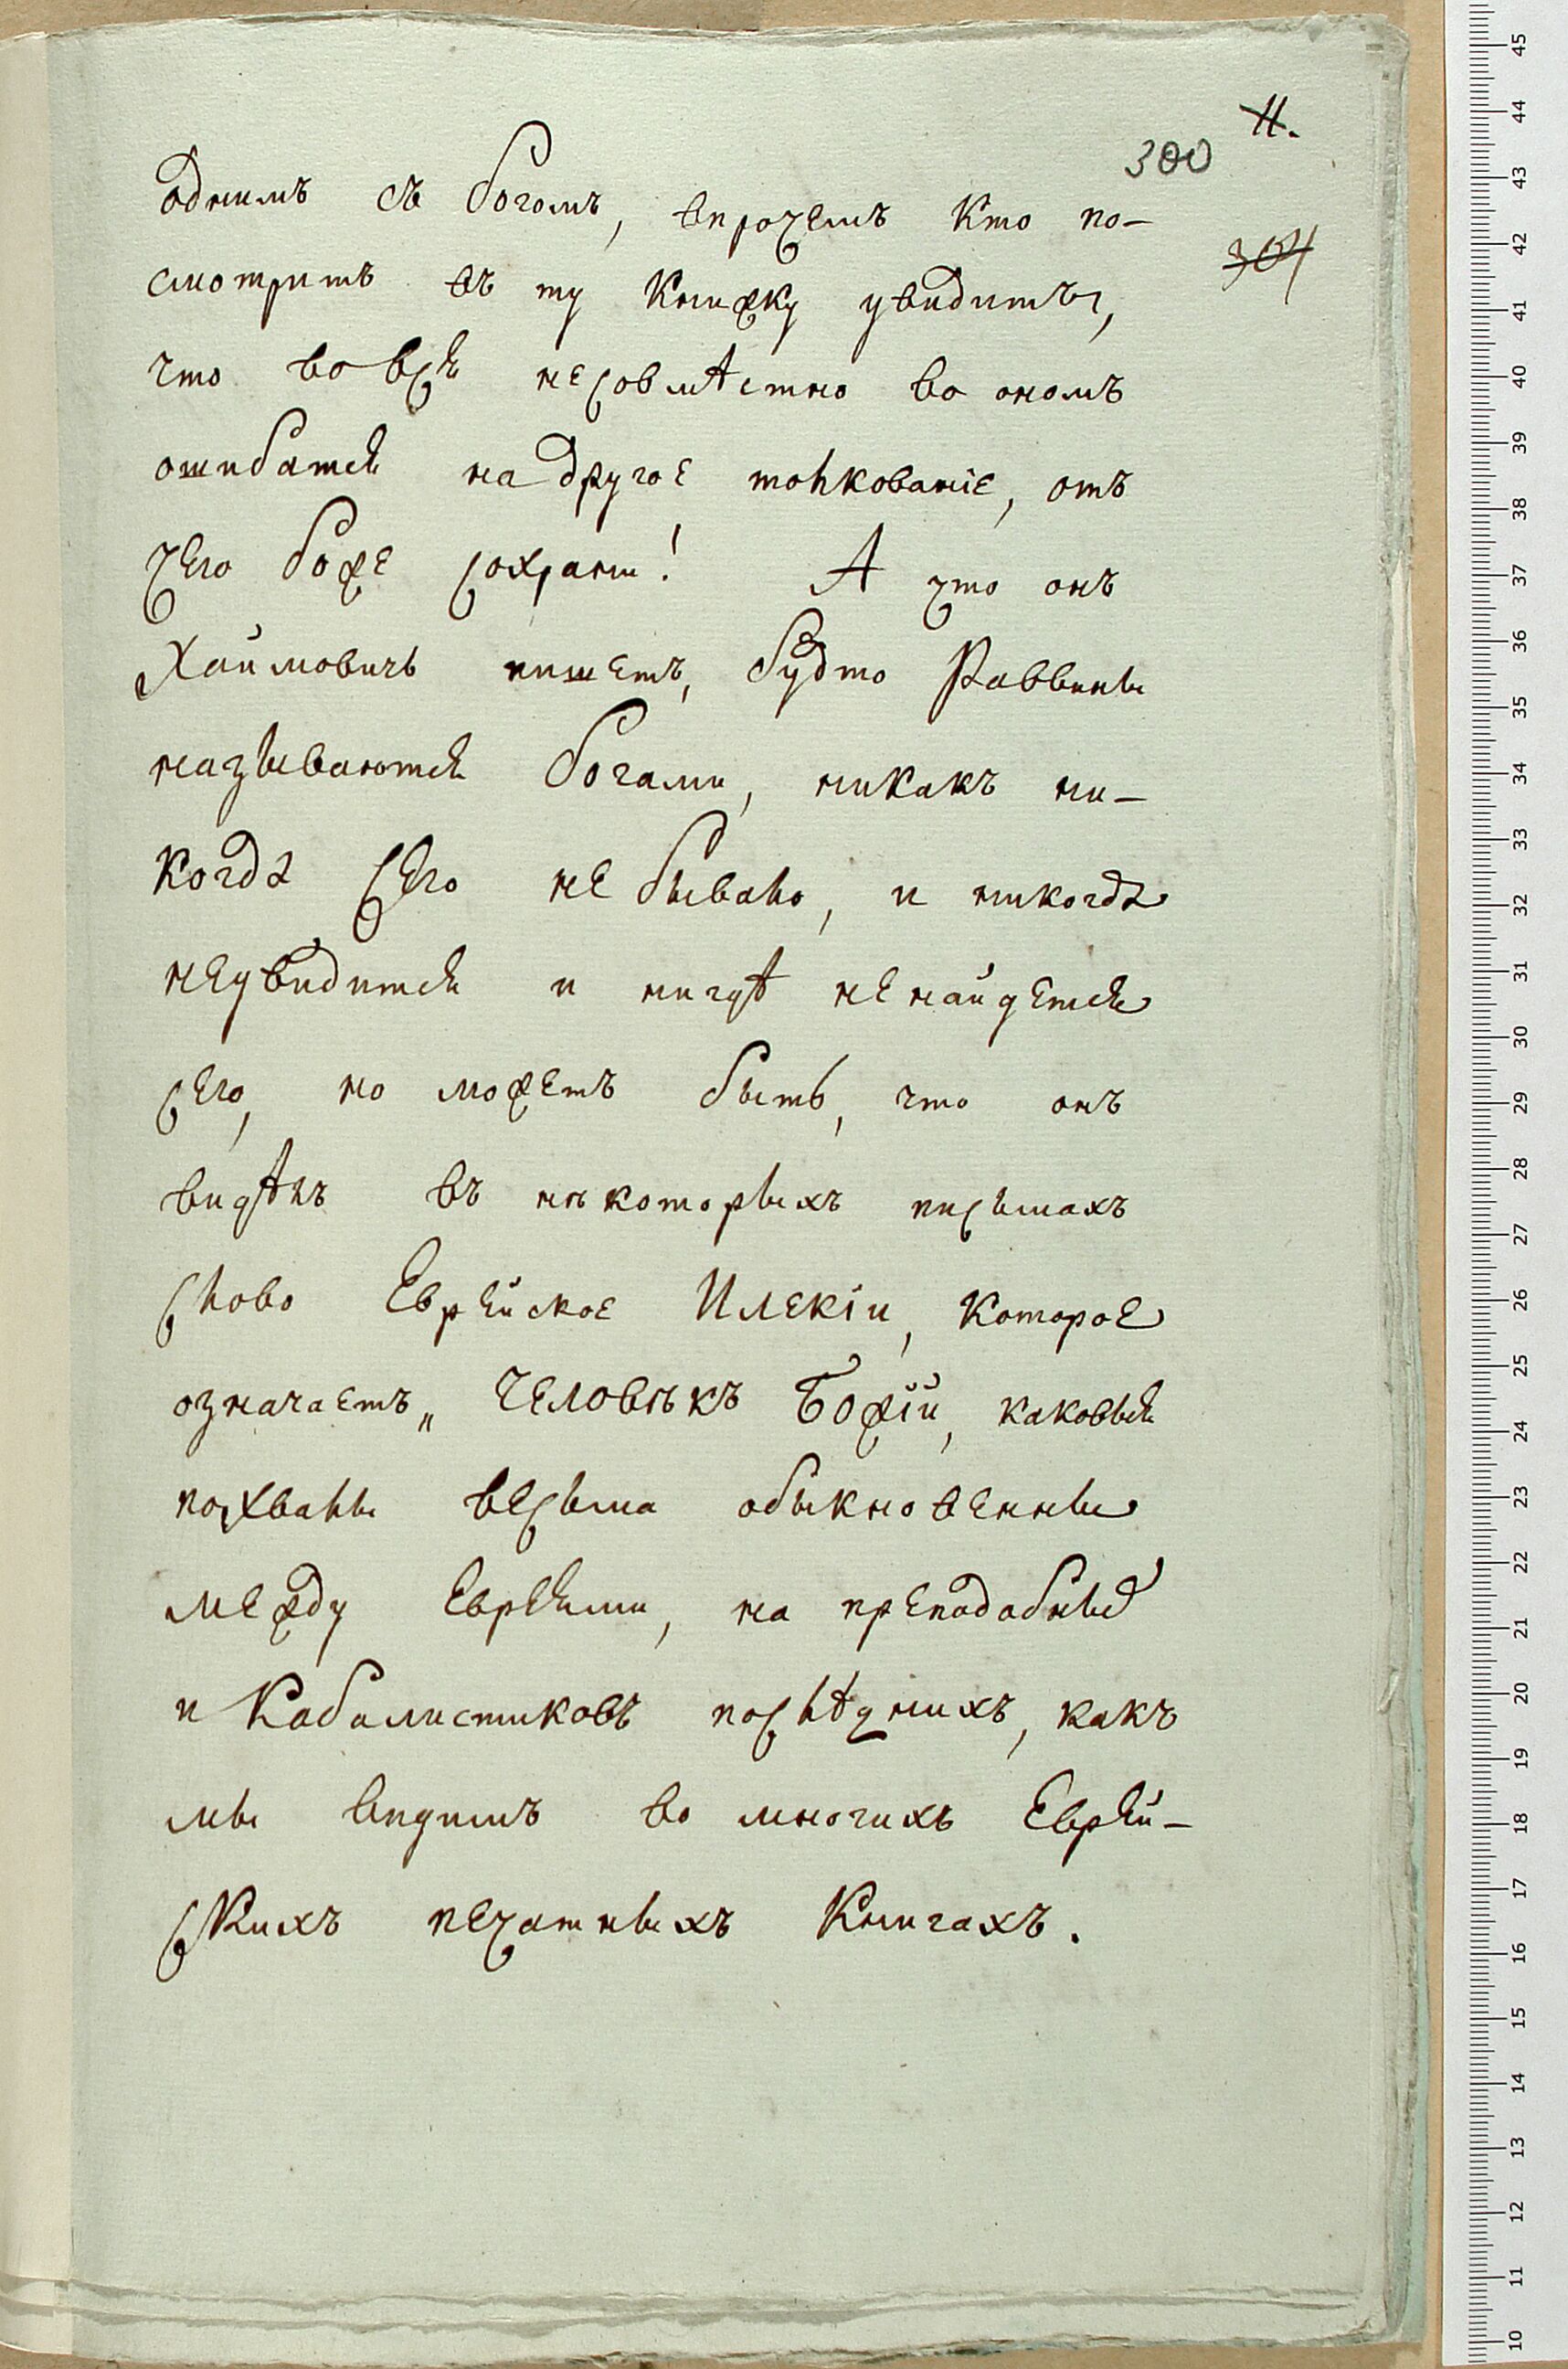 11.
300
304
однимъ съ богомъ, впрочемъ кто по-
смотритъ въ ту книжку увидитъ,
что вовся несовмѣстно во ономъ
ошибатся на другое толкованіе, отъ
чего боже сохрани! А что онъ
Хаймовичь пишетъ, будто Раввины
называются богами, никакъ ни-
когда сего не бывало, и никогда
неувидится и нигдѣ ненайдется
сего, но можетъ быть, что онъ
видѣлъ въ нѣкоторыхъ письмахъ
слово Еврейское Илекіи, которое
означаетъ „ Человѣкъ Божій, каковыя
похвалы весьма обыкновенны
между Евреями, на преподобные
и Кабалистиковъ послѣднихъ, какъ
мы видимъ во многихъ Еврей-
скихъ печатныхъ книгахъ.